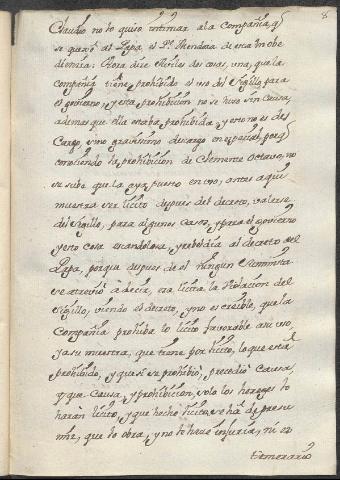 Claudio no lo quiso intimar a la Compañia, q̃
se quexó al Papa el P.e Mendoza de esta inobe
diencia: Aora dice Aviles dos cosas, una, que la
compañia tiene prohibido el uso del Sigillo para
el govierno, y esta prohibicion no se hizo sin causa,
ademas que ella estaba prohibida, y esto no es des
cargo, sino gravissimo descargo en especial, porq̃
conociendo la prohibicion de Clemente Octavo, no
se sabe que la aya puesto en uso, antes aqui
muestra ser licito despues del decreto, valerse
del Sigillo, para algunos casos, y para el govierno
y esto cosa escandelosa, y rebeldia al decreto del
Papa, porque despues de el ningun Summista
se atrevió à decir, era licita la violacion del
Sigillo, viendo el decreto, y no es creible, que la
Compañia prohiba lo licito favorable a su uso,
y assi muestra, que tiene por licito, lo que está
prohibido, y que si se prohibió, precedió causa,
y que causa, y prohibicion, solo los hereges lo
harán licito, y que hecho licito, se há de presu
mir, que lo obra, y no le hace injuria, ni es
temerario